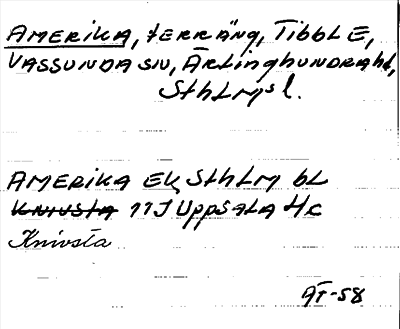 AMERIKA, terräng, TIBBLE,
VASSUNDA SN, ÄRLINGHUNDRA hd,
SthLMs l.
AMERIKA EK SthLM bL
KNIVSTA 11J UppSALA Hc
Knivsta
ÄT-58